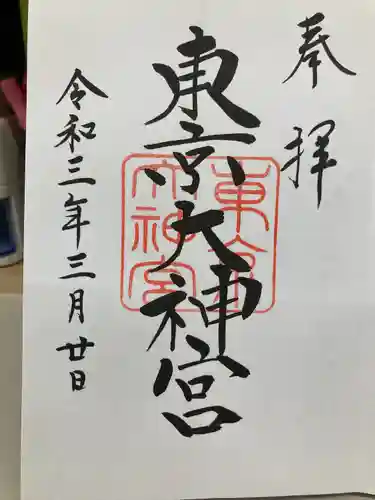 奉拝
東京大神宮
令和三年三月廿日
東京大神宮